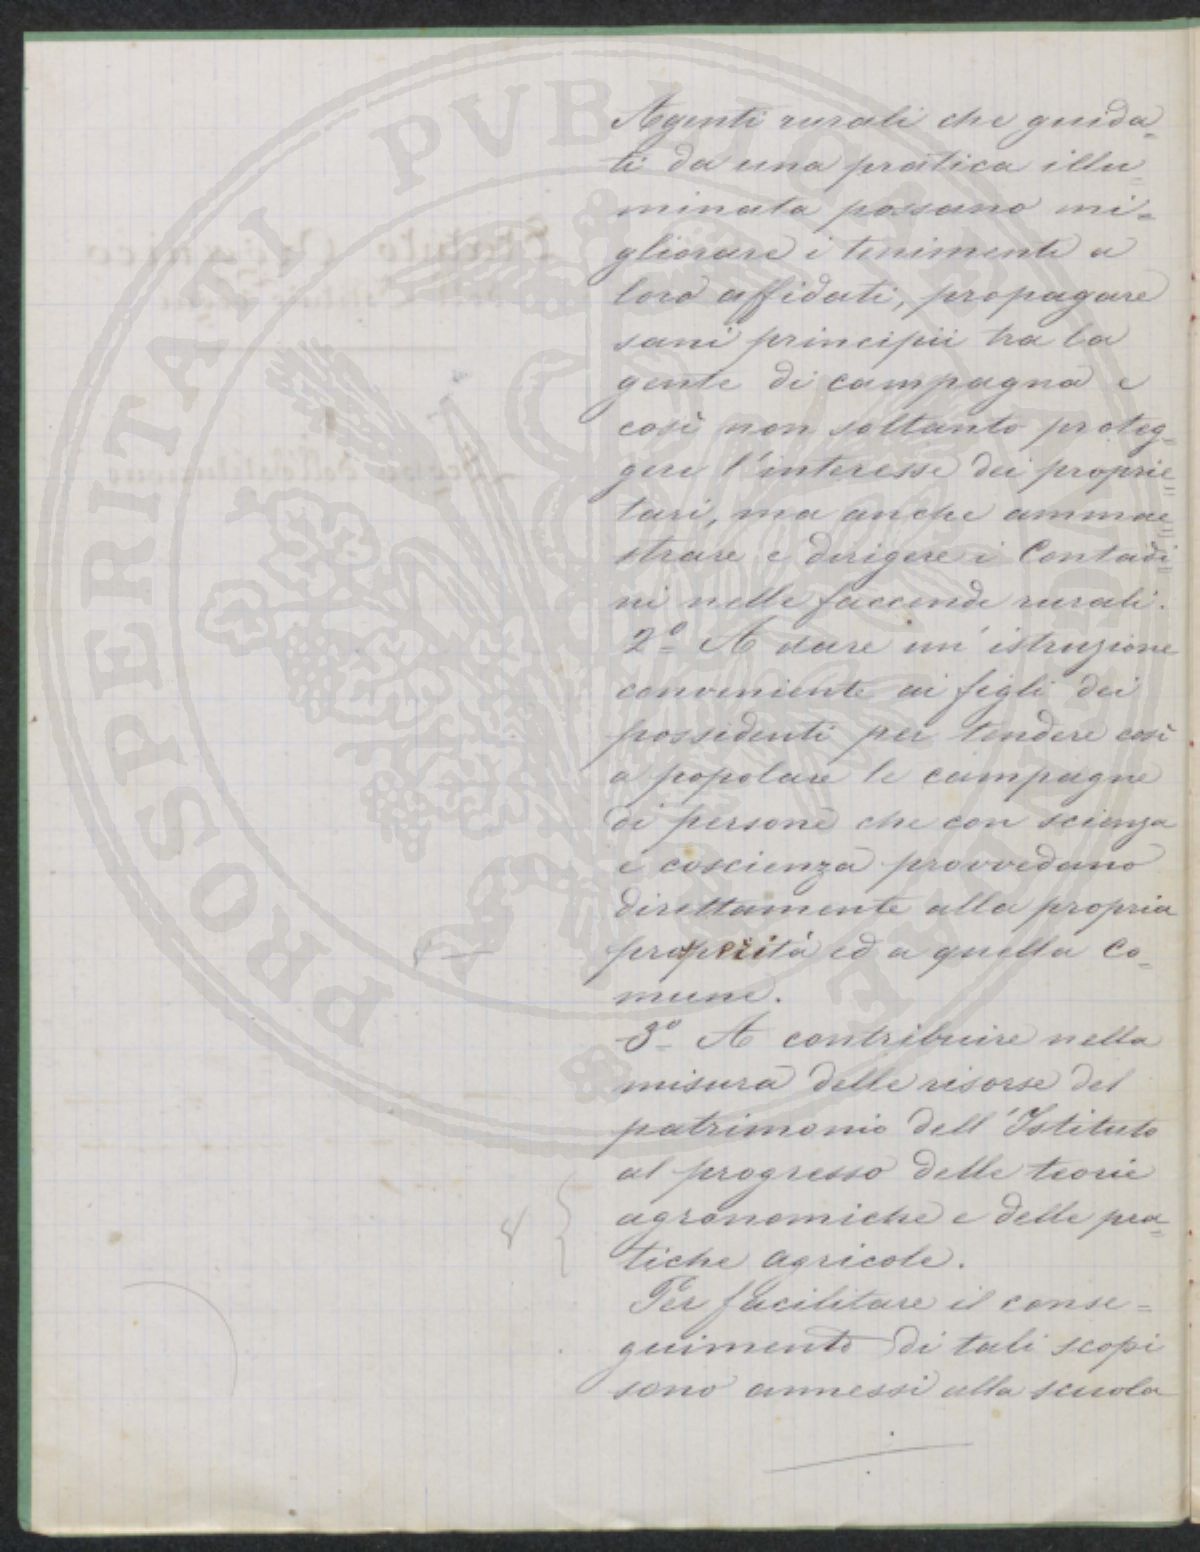 Agenti rurali che guida=
ti da una pratica illu=
minata possano mi=
gliorare i tenimenti a
loro affidati, propagare
sani principii tra la
gente di campagna e
così non soltanto proteg=
gere l'interesse dei proprie=
tari, ma anche ammae=
strare e dirigere i Contadi=
ni nelle faccende rurali.
2º A dare un'istruzione
conveniente ai figli dei
possidenti per tendere così
a popolare le campagne
di persone che con scienza
e coscienza provvedano
direttamente alla propria
prosperità ed a quella co=
mune.
3º A contribuire nella
misura delle risorse del
patrimonio dell'Istituto
al progresso delle teorie
agronomiche e delle pra=
tiche agricole.
Per facilitare il conse=
guimento di tali scopi
sono annessi alla scuola
PROSPERITATI PVBLICAE